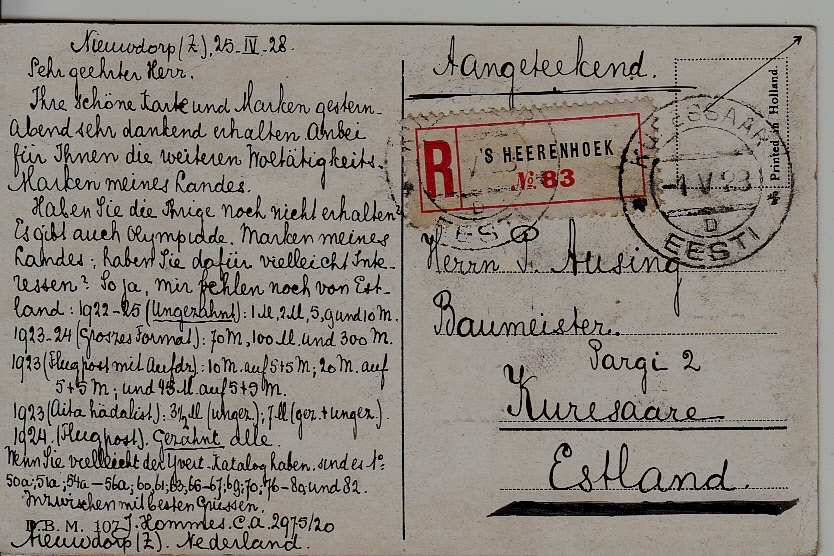 Nieuwdorp (Z), 25-IV-28.
Sehr geehrter Herr.
Ihre schöne Karte und Marken gestern-
Abend sehr dankend erhalten. Anbei
für Ihnen die weiteren Woltätigkeits-
Marken meines Landes.
Haben Sie die Ihrige noch nicht erhalten?
Es gibt auch Olympiade. Marken meines
Landes; haben Sie dafür vielleicht Inte-
ressen? So ja, mir fehlen noch von Est-
land: 1922-25 (Ungezähnt): 1M, 2M, 5, 9 und 10 M.
1923-24 (Groszes Format): 70M, 100M und 300 M.
1923 (Flugpost mit Aufdr): 10M. auf 5+5M; 20M. auf
5+5M; und 45M. auf 5+5M.
1923 (Aita hädalist): 3½M (ungez.); 7M (gez. + ungez.)
1924. (Flugpost). Gezähnt alle.
Wenn Sie vielleicht der Yvert-Katalog haben. sind es No:
50a; 51a; 54a-56a; 60; 61; 63; 66-67; 69; 70; 76-80 und 82.
Inzwischen mit besten Grüssen.
D.B.M. 107 J. Hommes. C.A. 2975/20
Nieuwdorp (Z). Nederland.
Aangeteekend.
Printed in Holland.
R
'S HEERENHOEK
No 83
KURESSAARE
-1 V 28
D
EESTI
D
EESTI
Herrn P. Ausing
Baumeister.
Pargi 2
Kuresaare
Estland.